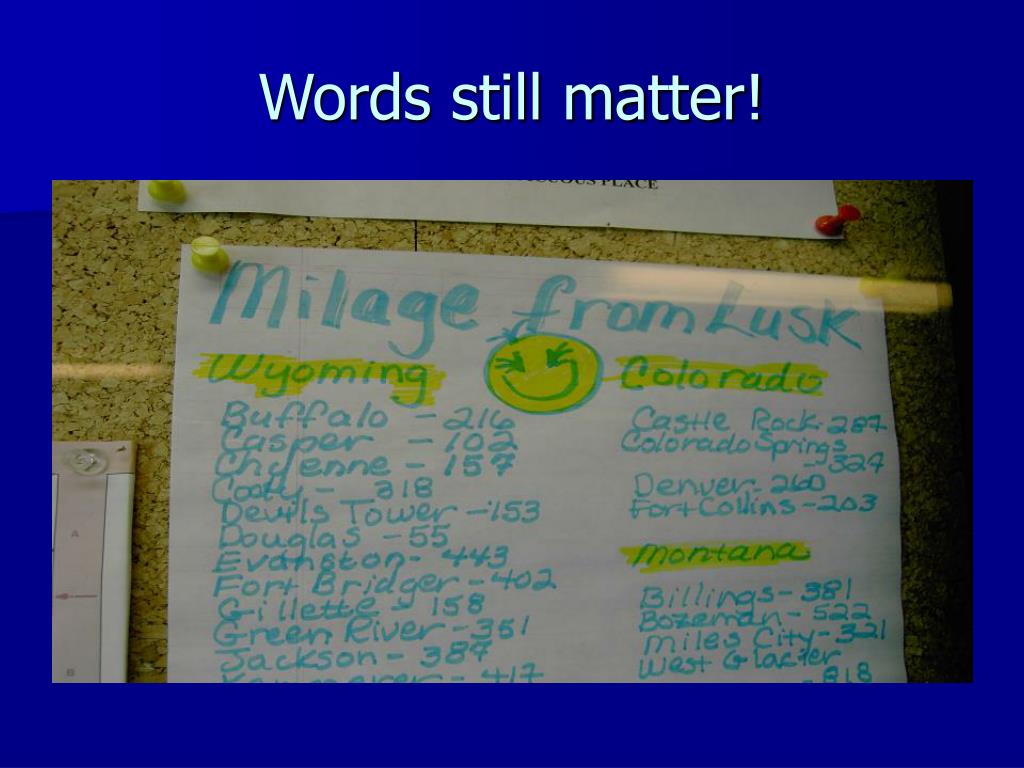 Words still matter!
PLACE
Milage from Lusk
Wyoming
Buffalo - 216
Casper - 102
Chyenne - 157
Cody - 318
Devils Tower - 153
Douglas - 55
Evanston - 443
Fort Bridger - 402
Gillette - 158
Green River - 351
Jackson - 387
- 417
Colorado
Castle Rock - 287
Colorado Springs
- 324
Denver - 260
Fort Collins - 203
Montana
Billings - 381
Bozeman - 522
Miles City - 321
West Glacier
- 818
A
B